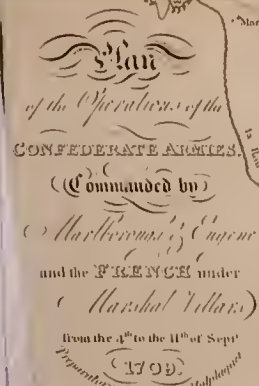 Mar
Plan
of the Operations of the
CONFEDERATE ARMIES,
Commanded by
Marlborough & Eugene
and the FRENCH under
Marshal Villars
from the 4th to the 11th of Septr
1709.
Preparatory
Malplaquet